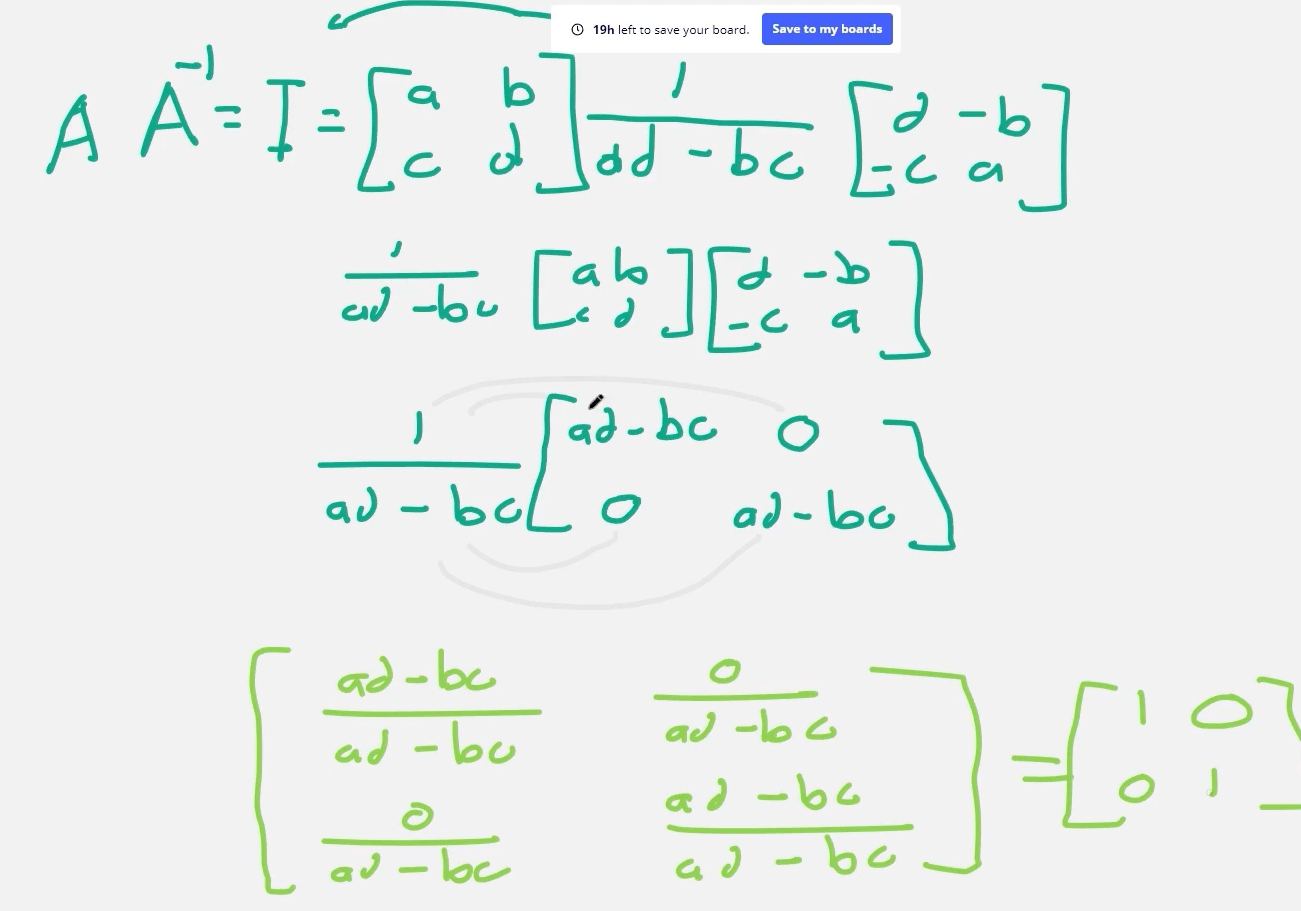 19h left to save your board. Save to my boards
A A⁻¹ = I = [a b; c d] 1/(ad - bc) [d -b; -c a]
1/(ad - bc) [a b; c d] [d -b; -c a]
1/(ad - bc) [ad - bc 0; 0 ad - bc]
[(ad - bc)/(ad - bc) 0/(ad - bc); 0/(ad - bc) (ad - bc)/(ad - bc)] = [1 0; 0 1]